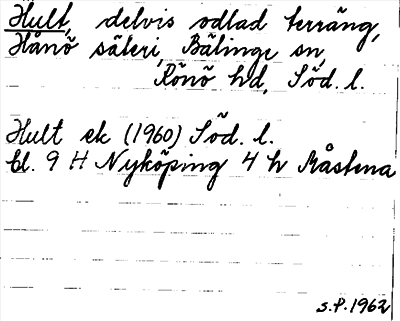 Hult, delvis odlad terräng,
Hånö säteri, Bälinge sn,
Rönö hd, Söd. l.
Hult ek (1960) Söd. l.
bl. 9 H Nyköping 4 h Måstena
S.P. 1962